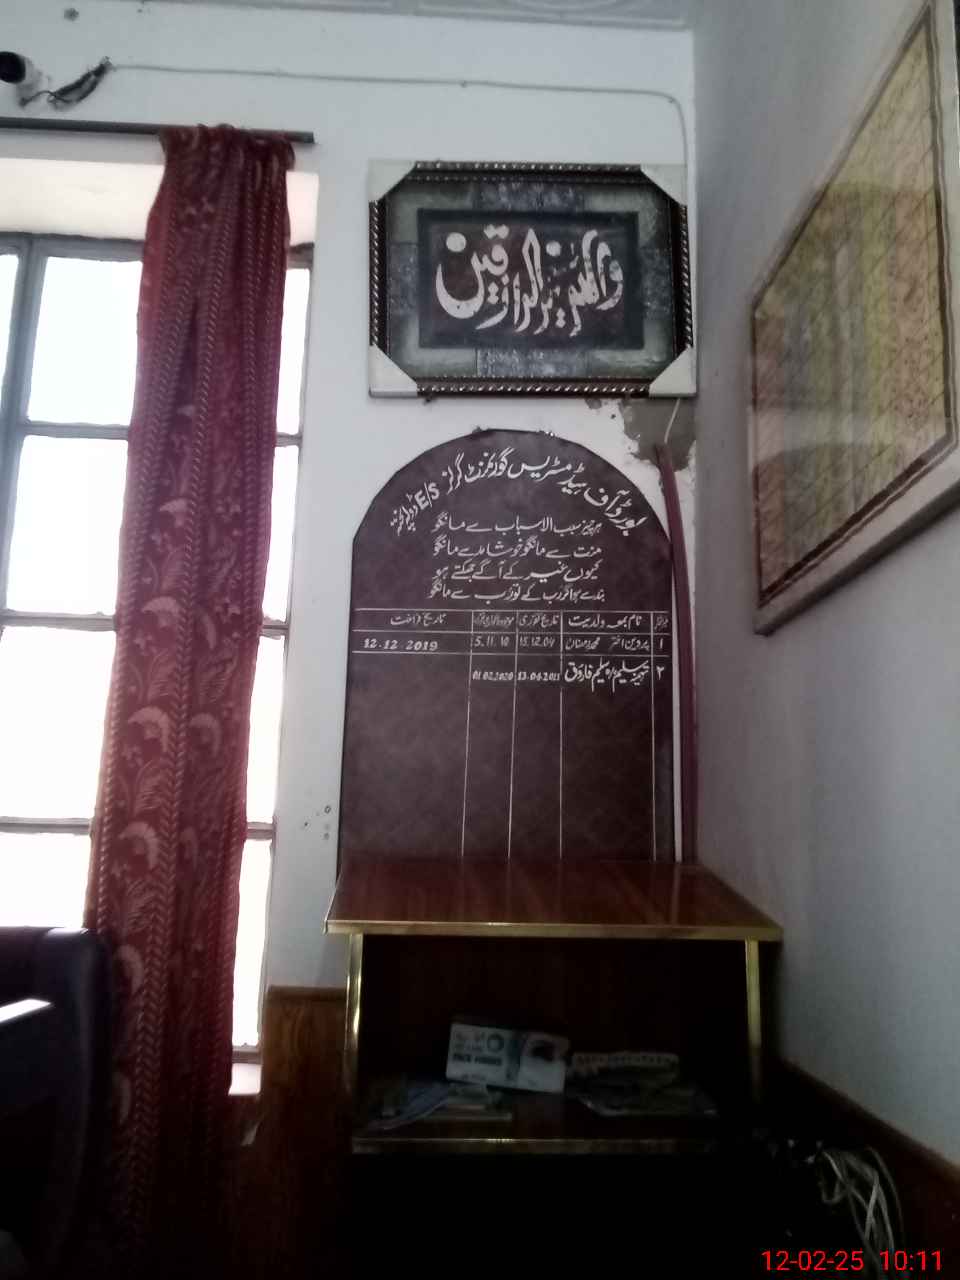 واللہ خیر الرازقین
بورڈ آف ہیڈ مسٹریس گورنمنٹ گرلز E/S
ہر چیز مسبب الاسباب سے مانگو
منت سے مانگو خوشامد سے مانگو
کیوں غیر کے آگے جھکتے ہو
بندے ہو اگر رب کے تو رب سے مانگو
نام بمعہ ولدیت تاریخ تقرری تاریخ فراغت
۱ پروین اختر محمد رمضان 15.12.04 5.11.10 12.12.2019
۲ تہمینہ سلیم سلیم فاروق 13.04.2011 01.02.2020
12-02-25 10:11